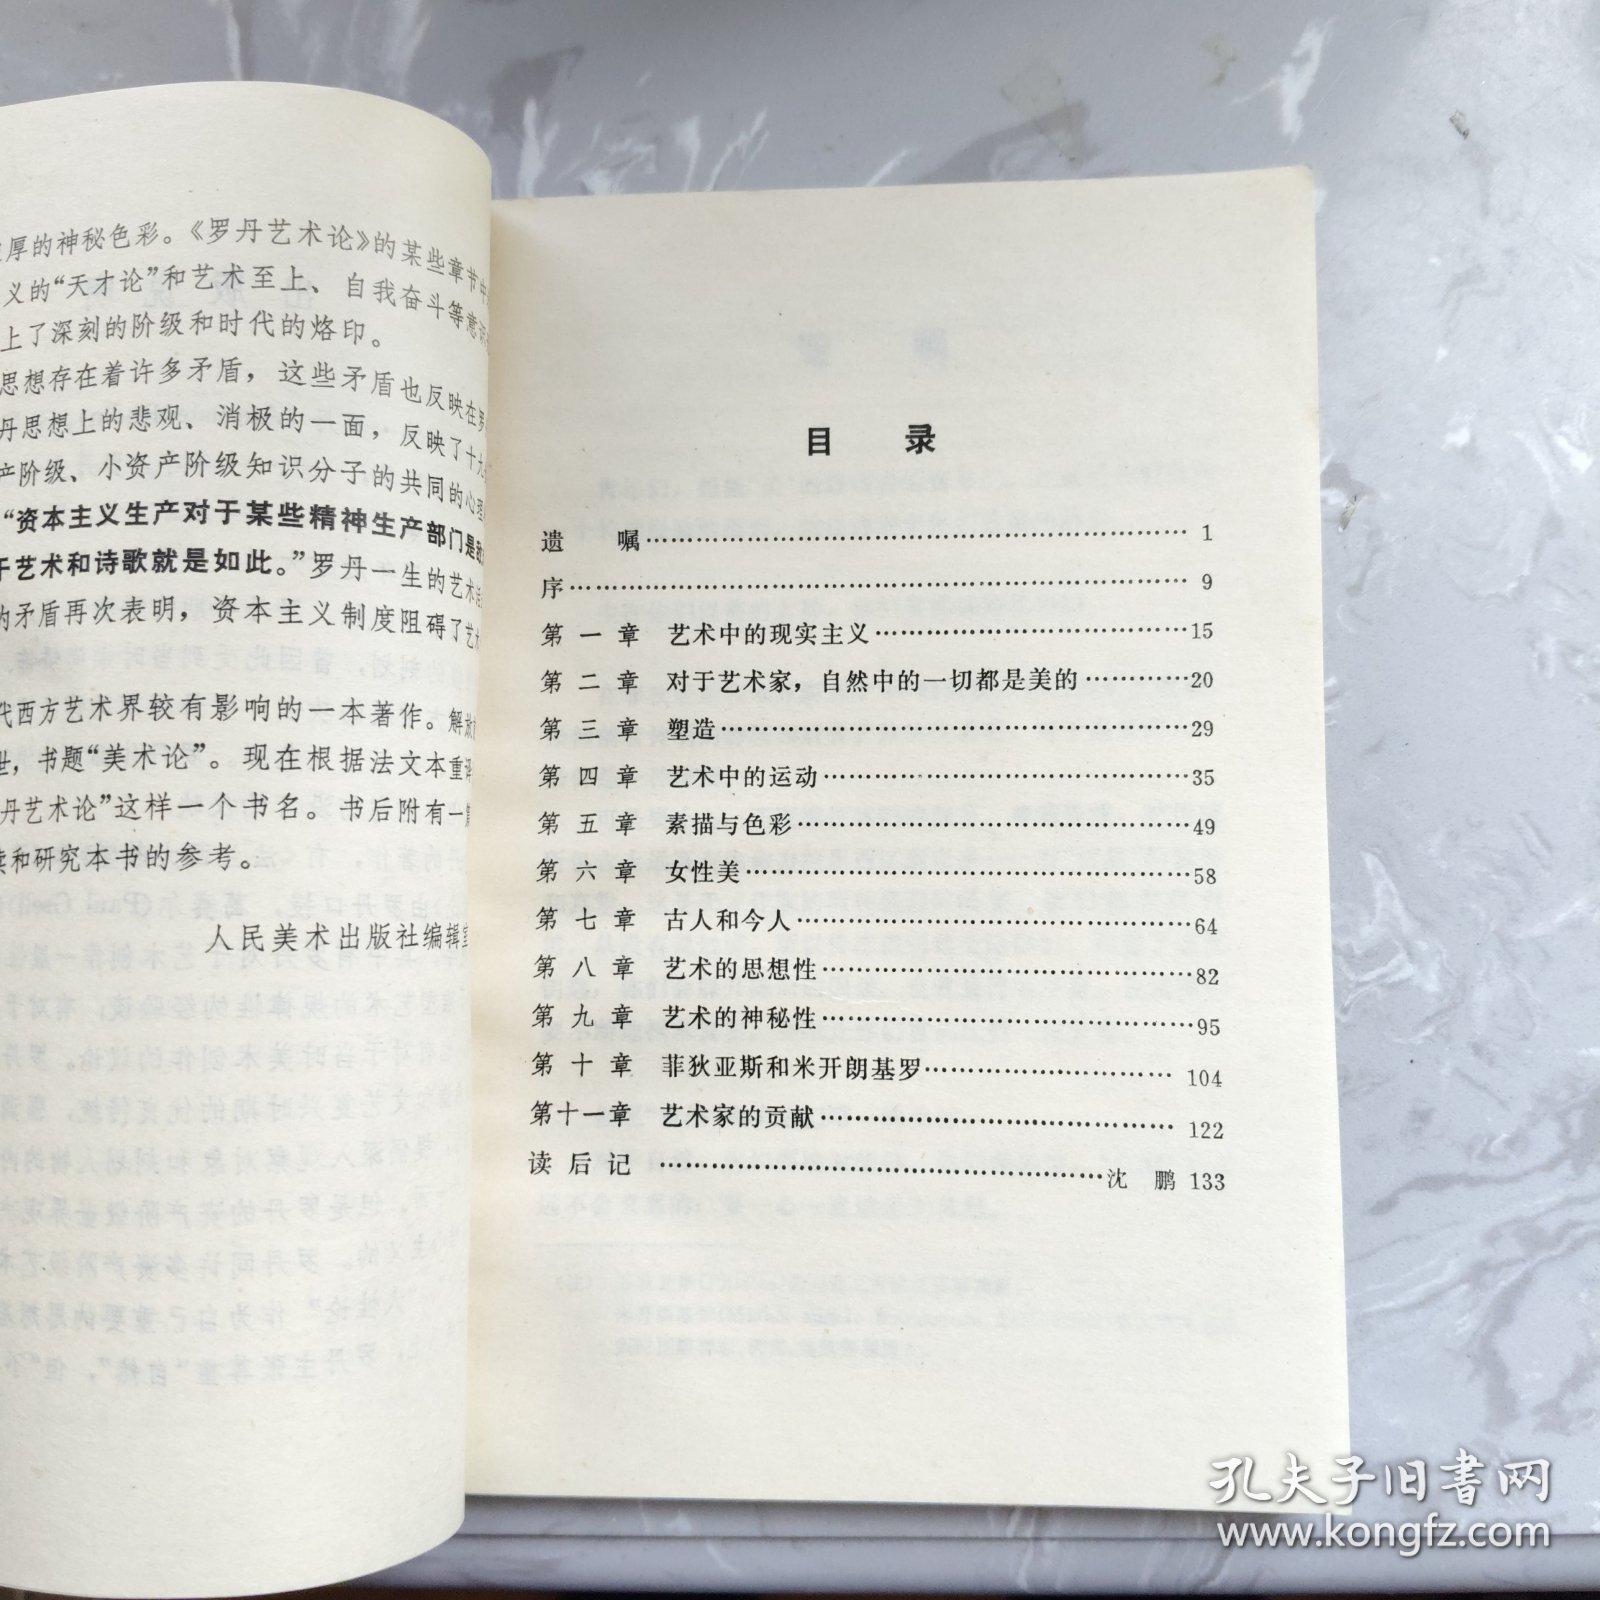 厚的神秘色彩。《罗丹艺术论》的某些章节中
义的“天才论”和艺术至上、自我奋斗等意识
上了深刻的阶级和时代的烙印。
思想存在着许多矛盾，这些矛盾也反映在罗
丹思想上的悲观、消极的一面，反映了十九
产阶级、小资产阶级知识分子的共同的心理
“资本主义生产对于某些精神生产部门是敌
于艺术和诗歌就是如此。”罗丹一生的艺术活
的矛盾再次表明，资本主义制度阻碍了艺术
代西方艺术界较有影响的一本著作。解放
世，书题“美术论”。现在根据法文本重译
丹艺术论”这样一个书名。书后附有一篇
读和研究本书的参考。
人民美术出版社编辑室
目 录
遗 嘱……………………………………………………… 1
序……………………………………………………………… 9
第一章 艺术中的现实主义……………………………… 15
第二章 对于艺术家，自然中的一切都是美的…………20
第三章 塑造………………………………………………29
第四章 艺术中的运动……………………………………35
第五章 素描与色彩………………………………………49
第六章 女性美……………………………………………58
第七章 古人和今人………………………………………64
第八章 艺术的思想性……………………………………82
第九章 艺术的神秘性……………………………………95
第十章 菲狄亚斯和米开朗基罗………………………… 104
第十一章 艺术家的贡献………………………………… 122
读后记 ……………………………………………沈 鹏 133
孔夫子旧书网
www.kongfz.com